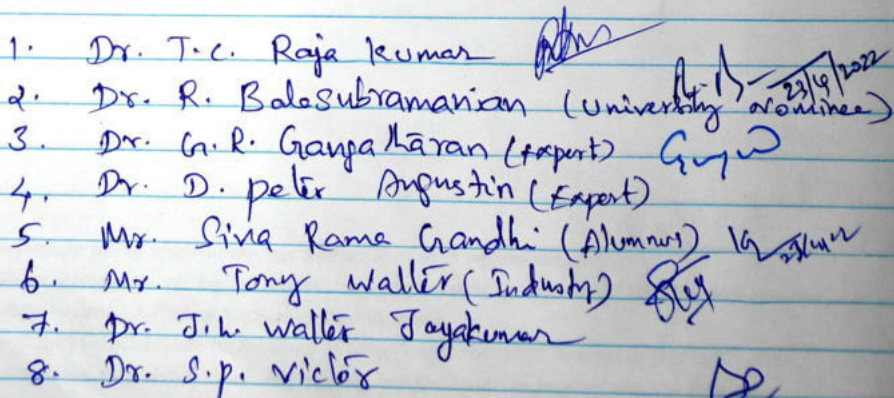 1. Dr. T.C. Raja Kumar
2. Dr. R. Balasubramanian (University Nominee) 23/4/2022
3. Dr. G.R. Gangatharan (Expert)
4. Dr. D. Peter Augustin (Expert)
5. Mr. Siva Rama Gandhi (Alumnus)
6. Mr. Tony Walter (Industry)
7. Dr. J.W. Walter Jayakumar
8. Dr. S.P. Victor